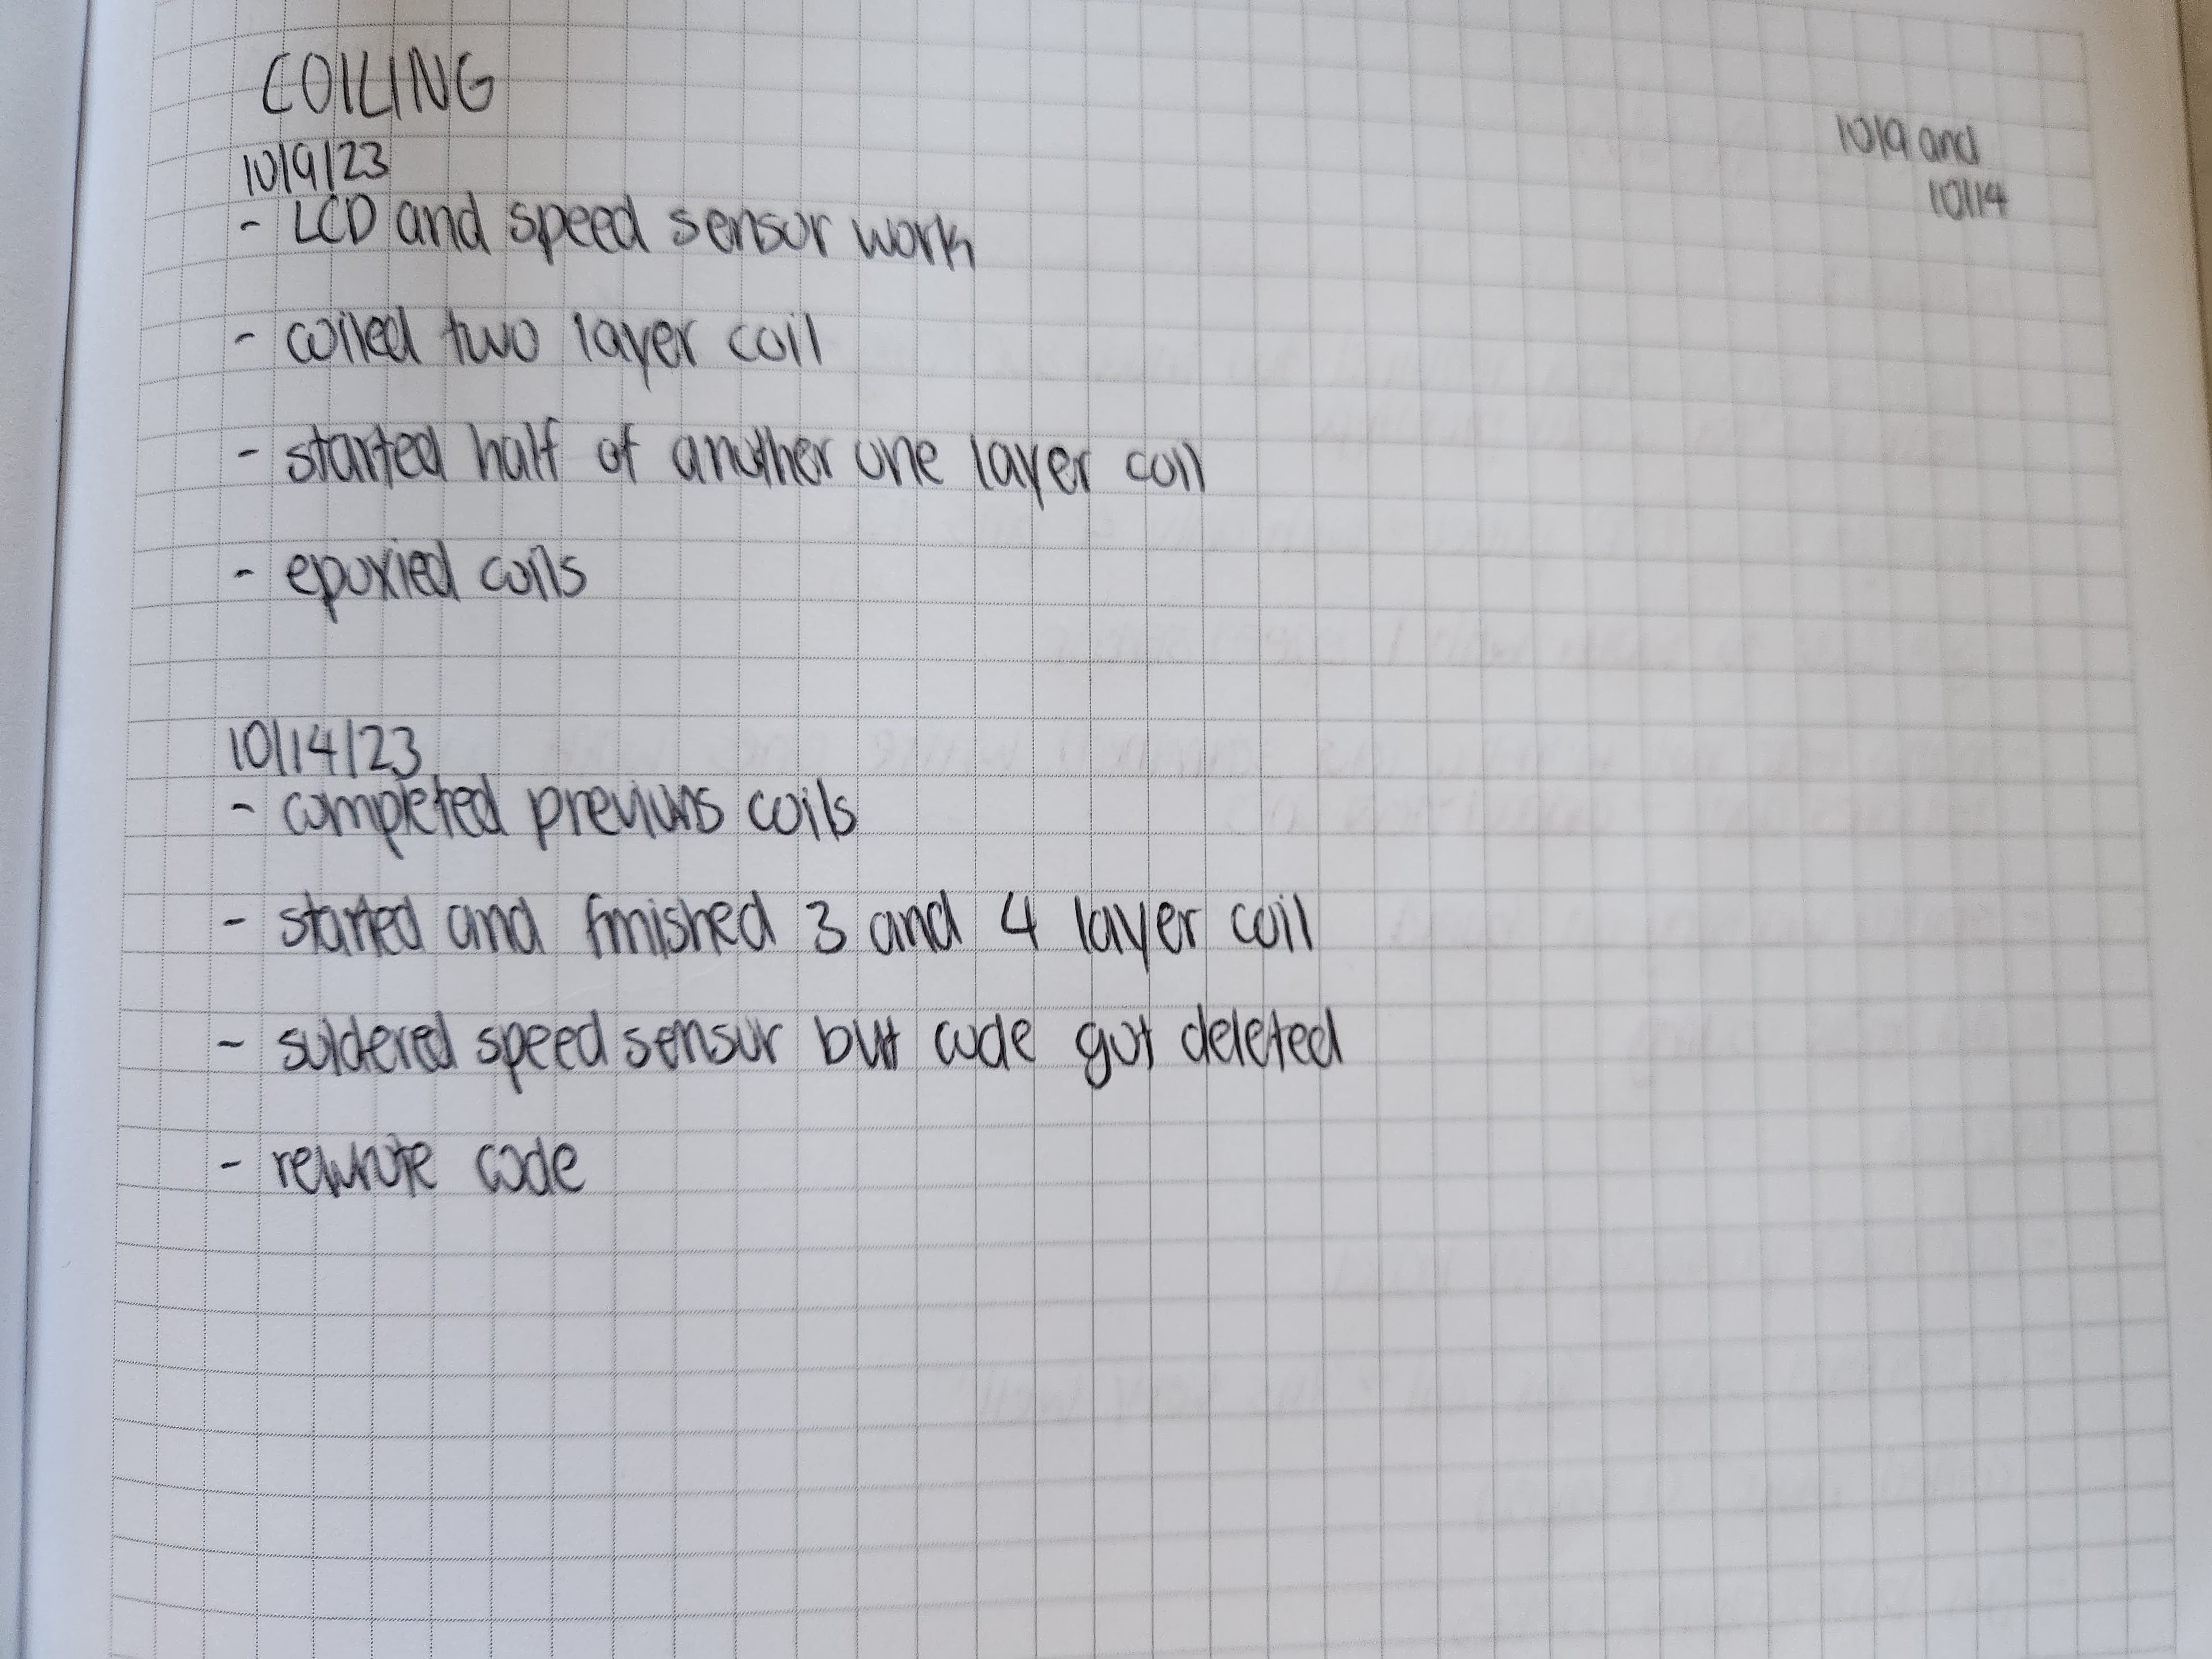 COILING
10/9 and
10/14
10/9/23
- LCD and speed sensor work
- coiled two layer coil
- started half of another one layer coil
- epoxied coils
10/14/23
- completed previous coils
- started and finished 3 and 4 layer coil
- soldered speed sensor but code got deleted
- rewrote code